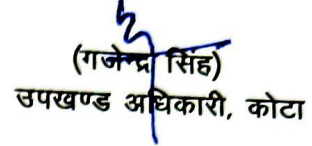 (गजेन्द्र सिंह)
उपखण्ड अधिकारी, कोटा